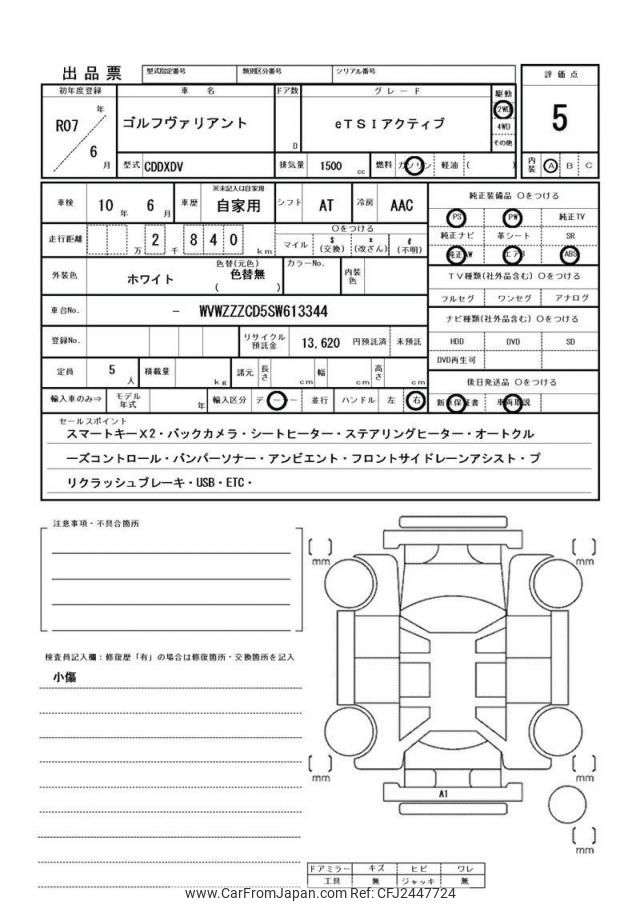 出品票 型式指定番号 類別区分番号 シリアル番号
初年度登録 車 名 ドア数 グレード 駆動 評価点
R07 年 6 月 ゴルフヴァリアント D eTSIアクティブ 2WD 4WD その他 5
型式 CDDXDV 排気量 1500 cc 燃料 ガソリン 軽油 ( ) 内装 A B C
車検 10 年 6 月 車歴 ※未記入は自家用 自家用 シフト AT 冷房 AAC 純正装備品 Oをつける
PS PW 純正TV
走行距離 万 2 千 8 4 0 km Oをつける マイル $(交換) x(改ざん) #(不明) 純正ナビ 革シート SR
純正AW エアB ABS
外装色 ホワイト 色替(元色) 色替無 ( ) カラーNo. 内装色 TV種類(社外品含む) Oをつける
フルセグ ワンセグ アナログ
車台No. - WVWZZZCD5SW613344 ナビ種類(社外品含む) Oをつける
登録No. リサイクル預託金 13,620 円預託済 未預託 HDD DVD SD
DVD再生可
定員 5 人 積載量 kg 諸元 長さ cm 幅 cm 高さ cm 後日発送品 Oをつける
輸入車のみ⇒ モデル年式 年 輸入区分 ディーラー 並行 ハンドル 左 右 新車保証書 車両取説
セールスポイント
スマートキーX2・バックカメラ・シートヒーター・ステアリングヒーター・オートクル
ーズコントロール・バンパーソナー・アンビエント・フロントサイドレーンアシスト・プ
リクラッシュブレーキ・USB・ETC・
注意事項・不具合箇所
[ ] mm [ ] mm
検査員記入欄:修復歴「有」の場合は修復箇所・交換箇所を記入
小傷
[ ] mm [ ] mm
A1
[ ] mm
ドアミラー キズ ヒビ ワレ
工具 無 ジャッキ 無
www.CarFromJapan.com Ref: CFJ2447724